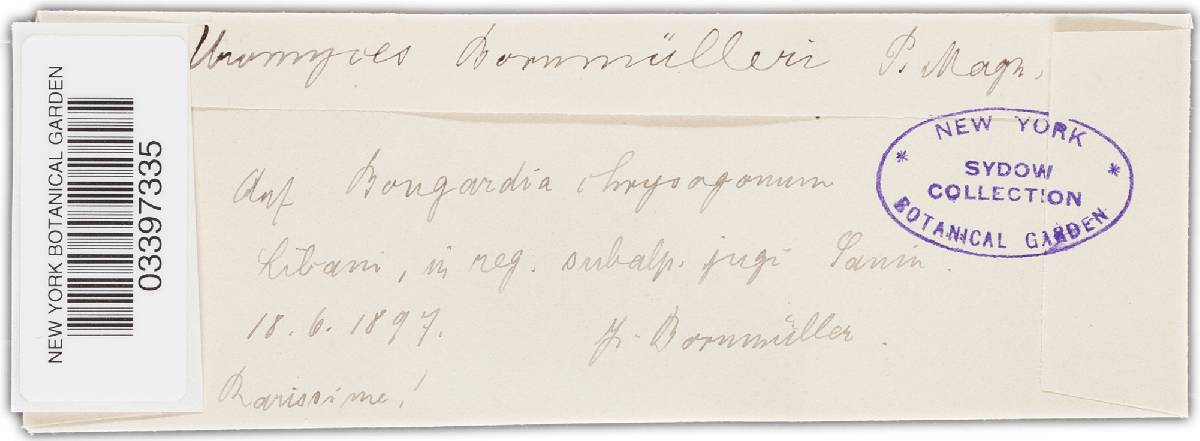 NEW YORK BOTANICAL GARDEN
03397335
Uromyces Bornmülleri P. Magn.
NEW YORK
SYDOW
COLLECTION
BOTANICAL GARDEN
Auf Bongardia chrysogonum
Libani, in reg. subalp. jugi Sanin.
18.6.1897. J. Bornmüller.
Rarissime!